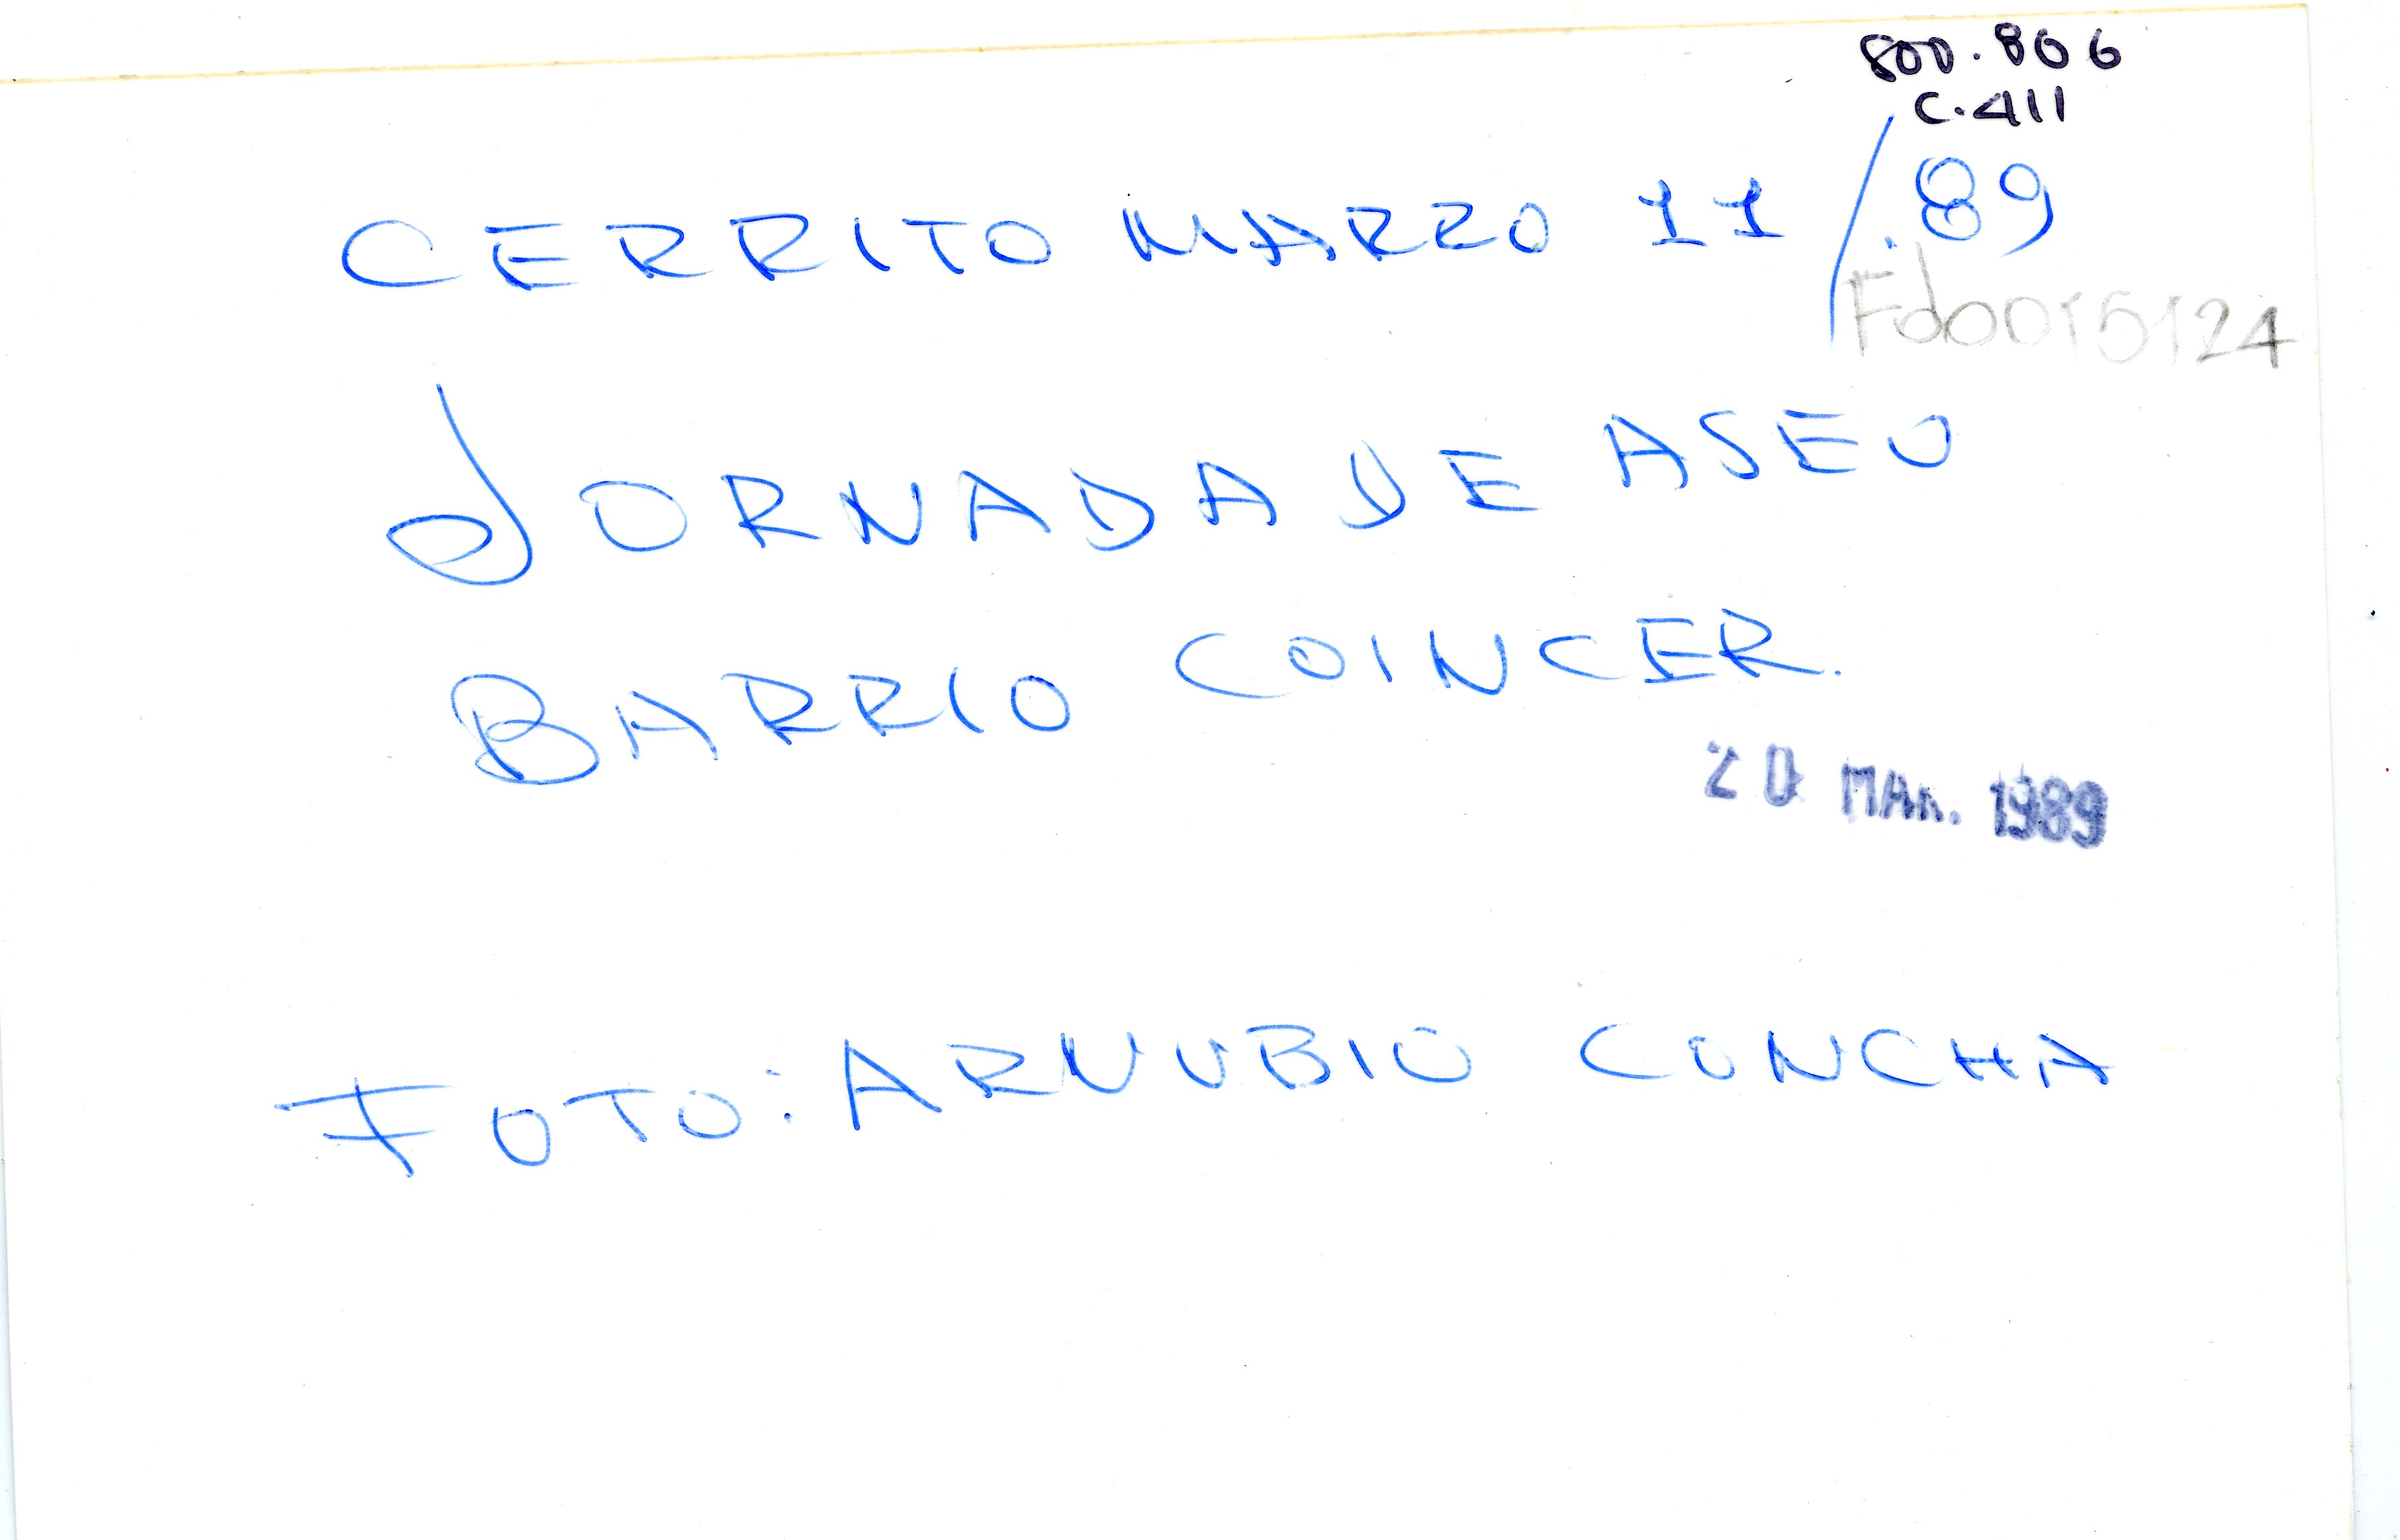 800.806
C.411
CERRITO MARZO 11/.89
Fd0015124
JORNADA DE ASEO
BARRIO COINCER.
20 MAR. 1989
FOTO: ARNUBIO CONCHA